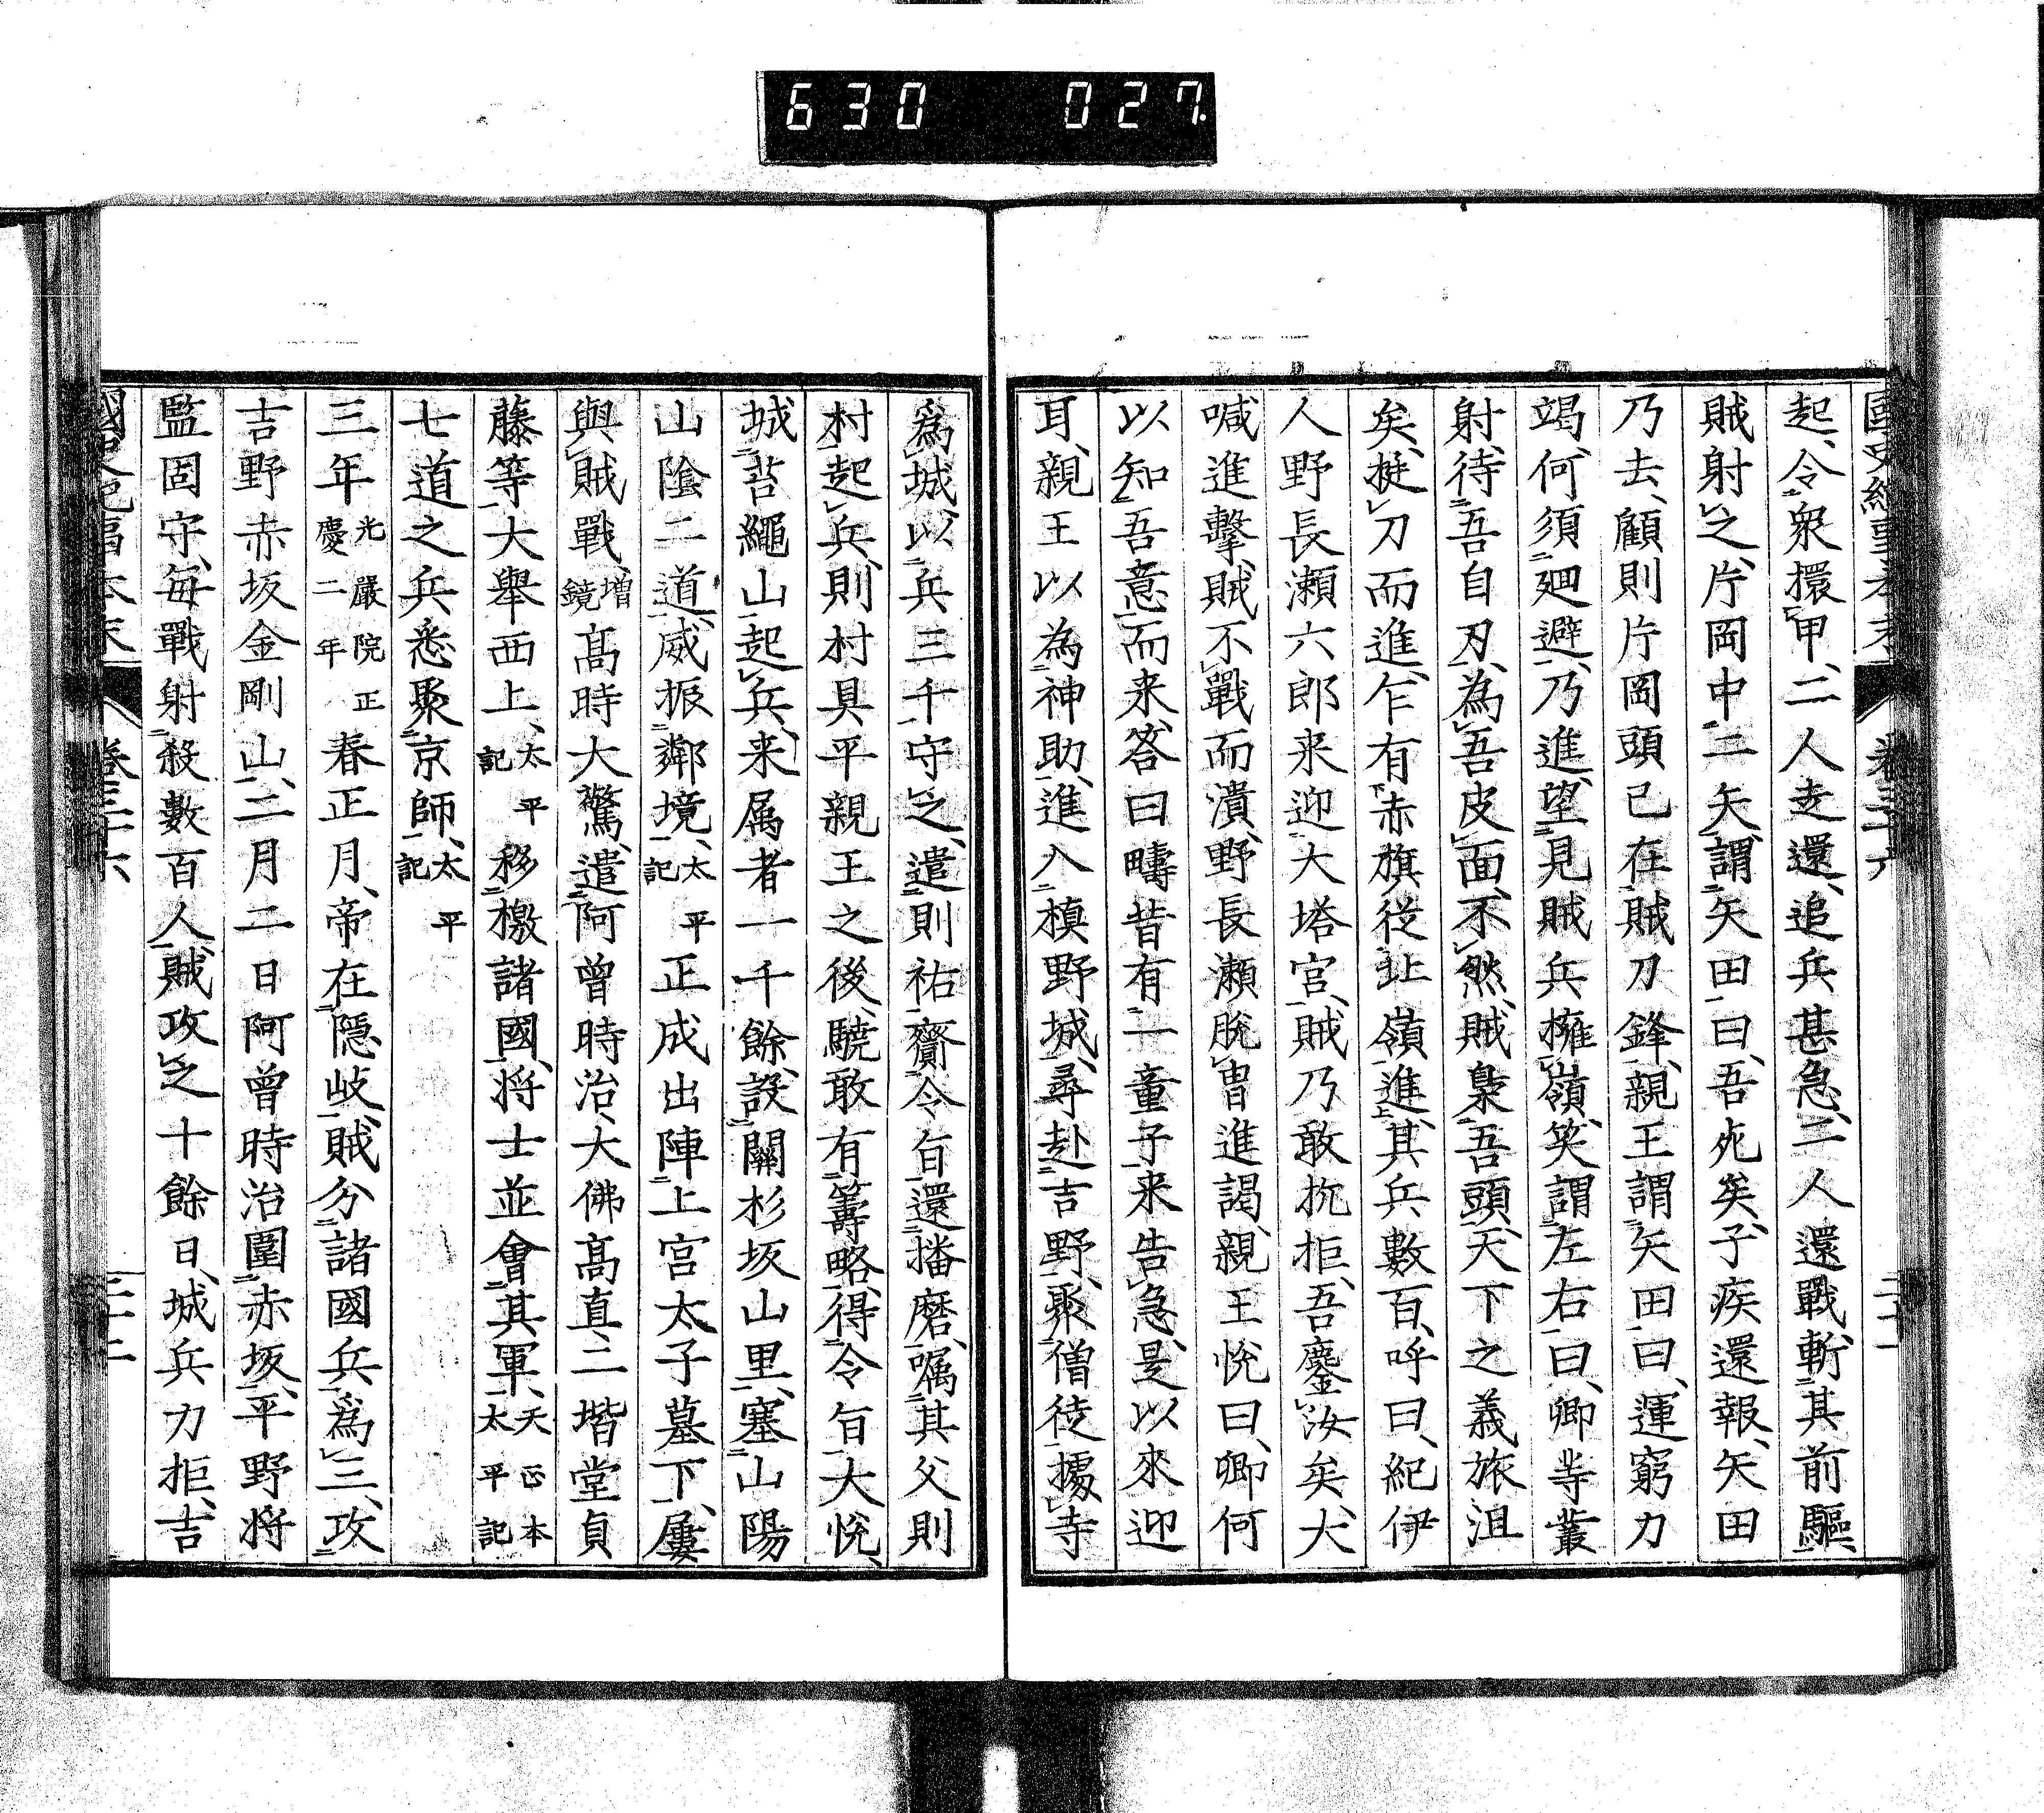 630 027.
起、令衆擐甲、二人走還、追兵甚急、二人還戰、斬其前驅、
賊射之、片岡中二矢、謂矢田曰、吾死矣、子疾還報、矢田
乃去、顧則片岡頭已在賊刀鋒、親王謂矢田曰、運窮力
竭、何須廻避、乃進、望見賊兵擁嶺、笑謂左右曰、卿等叢
射、待吾自刃、為吾皮面、不然、賊梟吾頭、天下之義旅沮
矣、挺刀而進、乍有赤旗從北嶺進、其兵數百、呼曰、紀伊
人野長瀨六郎来迎大塔宮、賊乃敢抗拒、吾鏖汝矣、大
喊進擊、賊不戰而潰、野長瀨脫冑進謁、親王悅曰、卿何
以知吾意而来、答曰疇昔有一童子来告急、是以來迎
耳、親王以為神助、進入槙野城、尋赴吉野、聚僧徒據寺
爲城、以兵三千守之、遣則祐齎令旨還播磨、嘱其父則
村起兵、則村具平親王之後、驍敢有籌略、得令旨大悅、
城苔繩山起兵、来属者一千餘、設關杉坂山里、塞山陽
山陰二道、威振鄰境、太平記正成出陣上宮太子墓下、屢
與賊戰、增鏡高時大驚、遣阿曾時治、大佛高直、二堦堂貞
藤等大舉西上、太平記移檄諸國、将士並會其軍、天正本太平記
七道之兵悉聚京師、太平記
三年光嚴院正慶二年春正月、帝在隱岐、賊分諸國兵爲三、攻
吉野赤坂金剛山、二月二日阿曾時治圍赤坂、平野将
監固守、毎戰射殺數百人、賊攻之十餘日、城兵力拒、吉
卷三十六